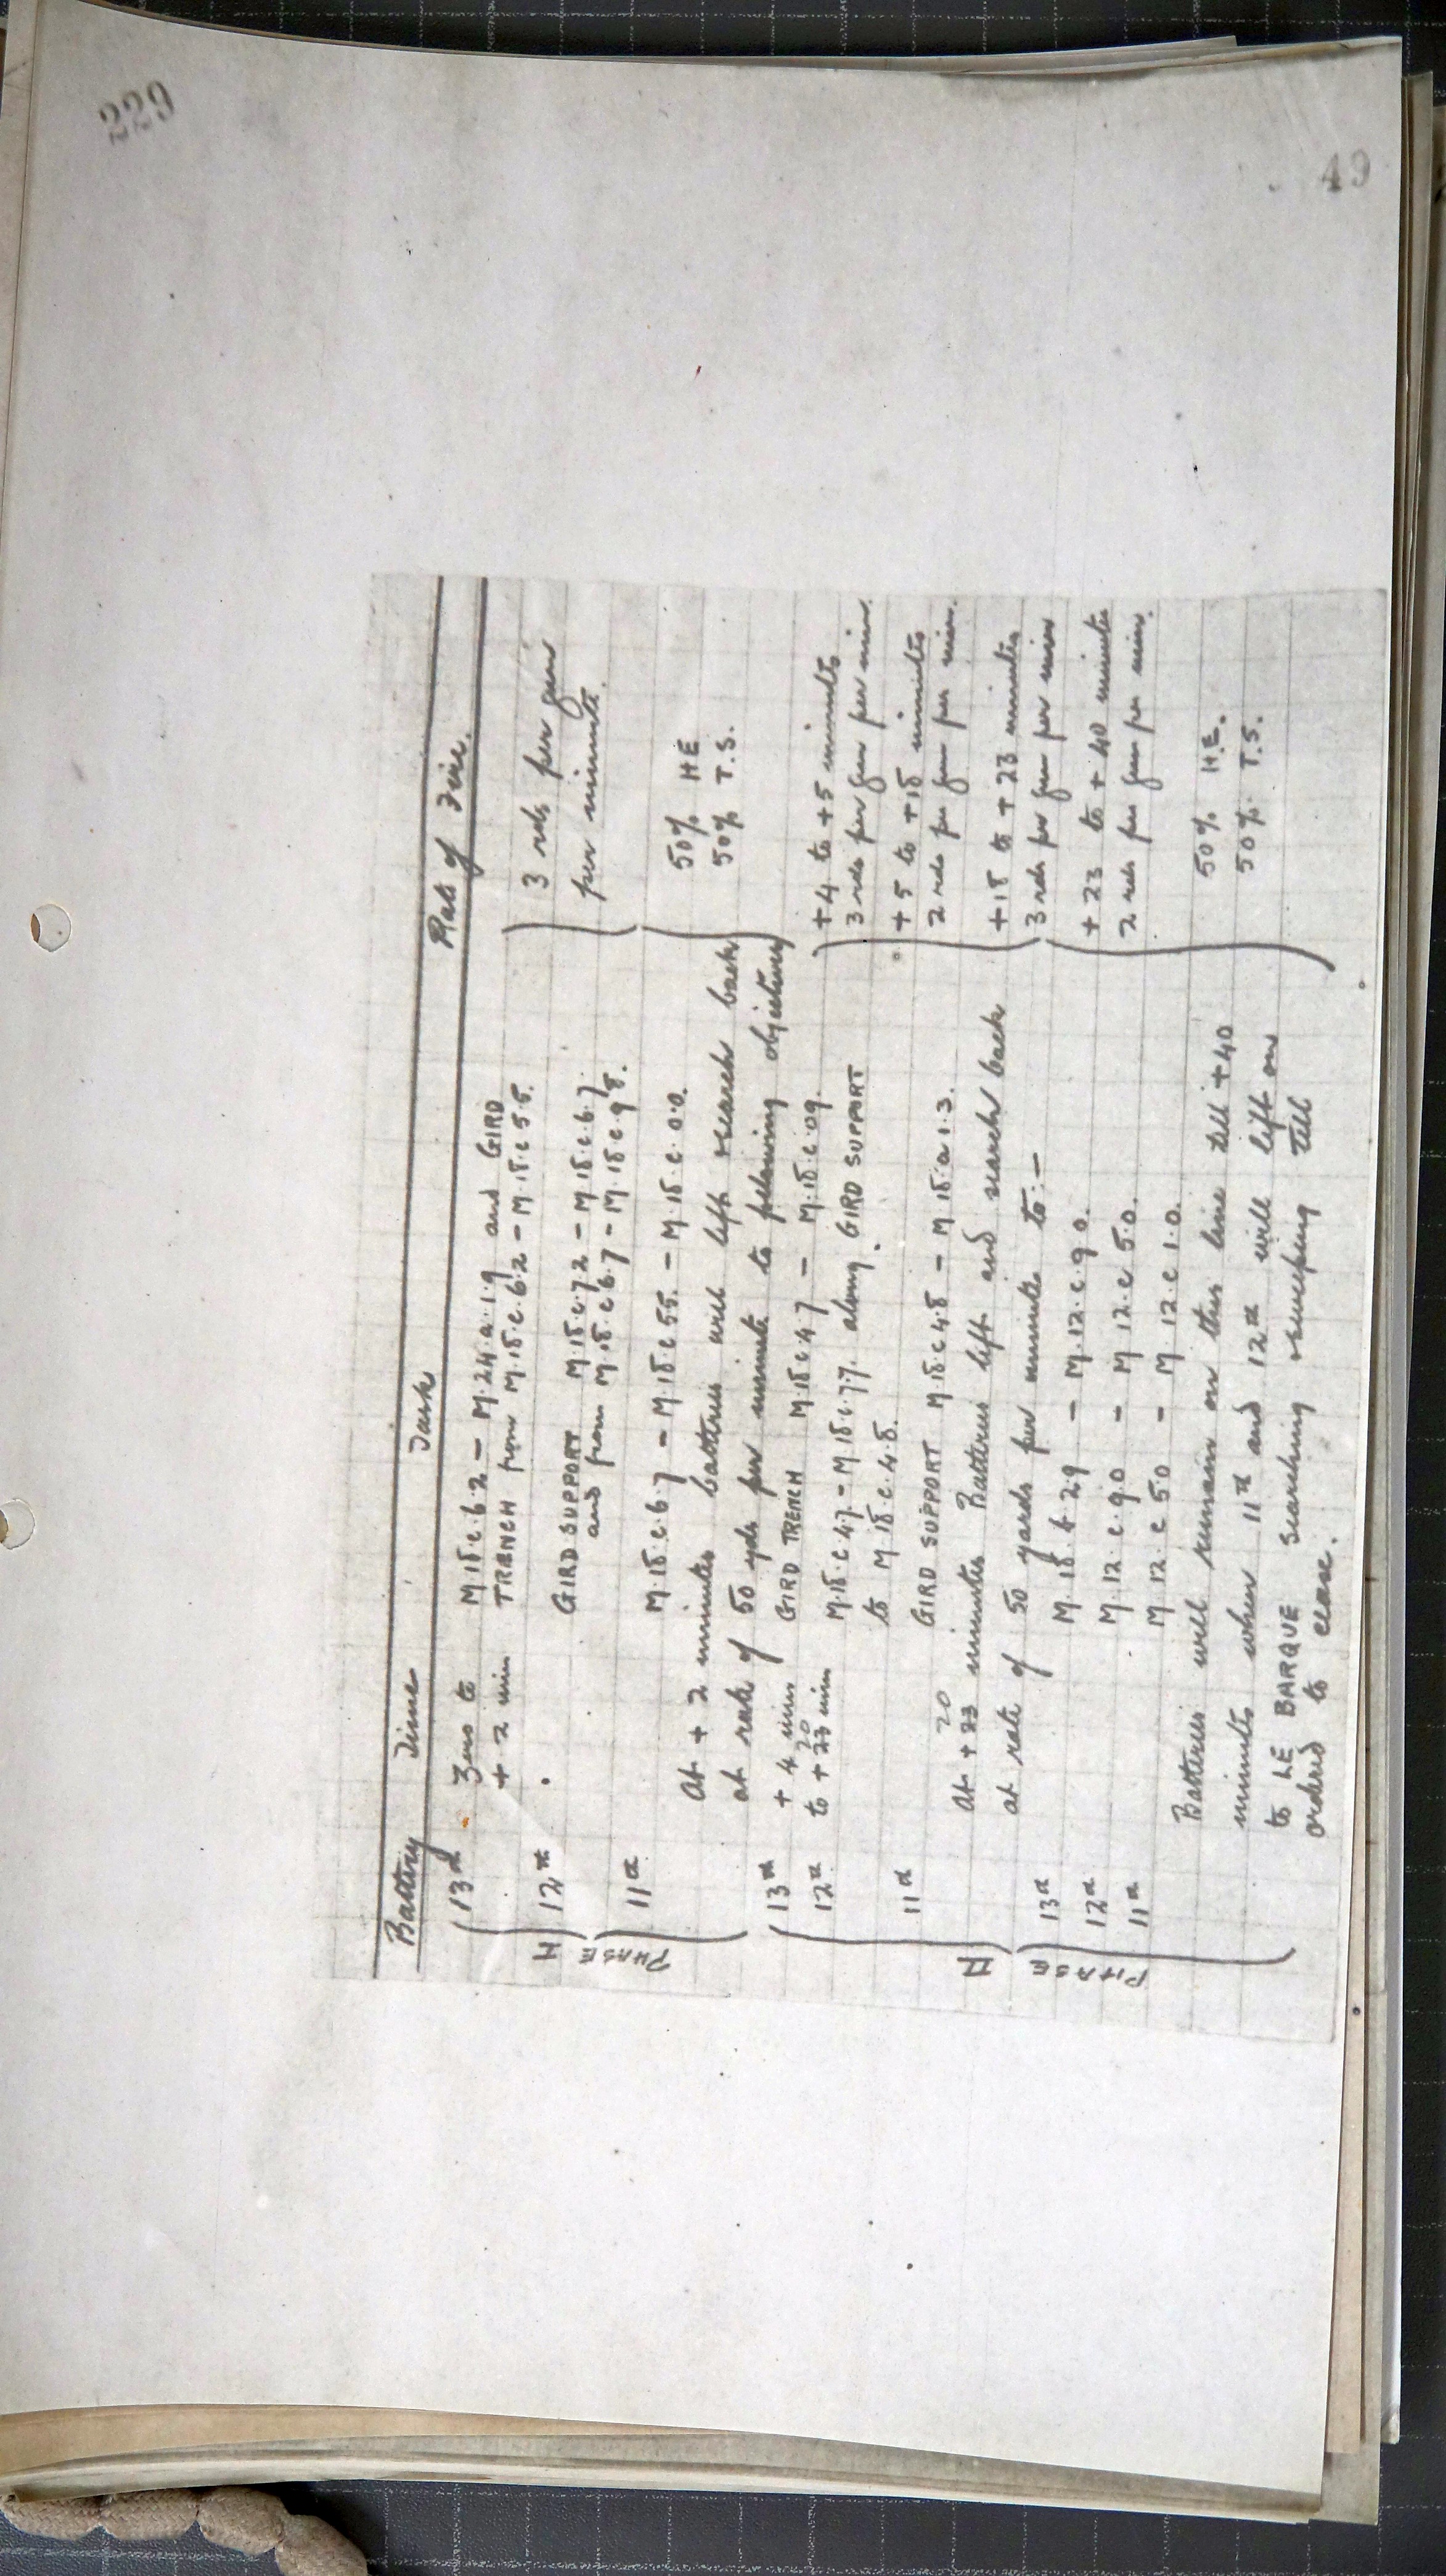 229
49
Battery Time Task Rate of Fire.
13th Zero to M.18.c.6.2 – M.24.a.1.9 and GIRD
+ 2 min TRENCH from M.18.c.6.2 – M.18.c.5.5.
3 rds per gun
per minute.
12th GIRD SUPPORT M.18.c.7.2 – M.18.c.6.7.
and from M.18.c.6.7 – M.18.c.9.8.
11th M.18.c.6.7 – M.18.c.5.5. – M.18.c.0.0.
50% HE
50% T.S.
PHASE I
At + 2 minutes batteries will lift & search back
at rate of 50 yds per minute to following objectives
13th + 4 mins GIRD TRENCH M.18.c.4.7 – M.18.c.0.9.
12th to + 23 20 min M.18.c.4.7. – M.18.c.7.7. along GIRD SUPPORT
to M.18.c.4.8.
11th GIRD SUPPORT M.18.c.4.8 – M.18.a.1.3.
+4 to +5 minutes
3 rds per gun per min.
+5 to +18 minutes
2 rds per gun per min.
At + 23 20 minutes Batteries lift and search back
at rate of 50 yards per minute to:–
+18 to +23 minutes
3 rds per gun per min
13th M.18.b.2.9 – M.12.c.9.0.
12th M.12.c.9.0 – M.12.c.5.0.
11th M.12.c.5.0 – M.12.c.1.0.
+23 to +40 minutes
2 rds per gun per min.
PHASE II
Batteries will remain on this line till +40
minutes when 11th and 12th will lift on
to LE BARQUE searching & sweeping till
ordered to cease.
50% H.E.
50% T.S.